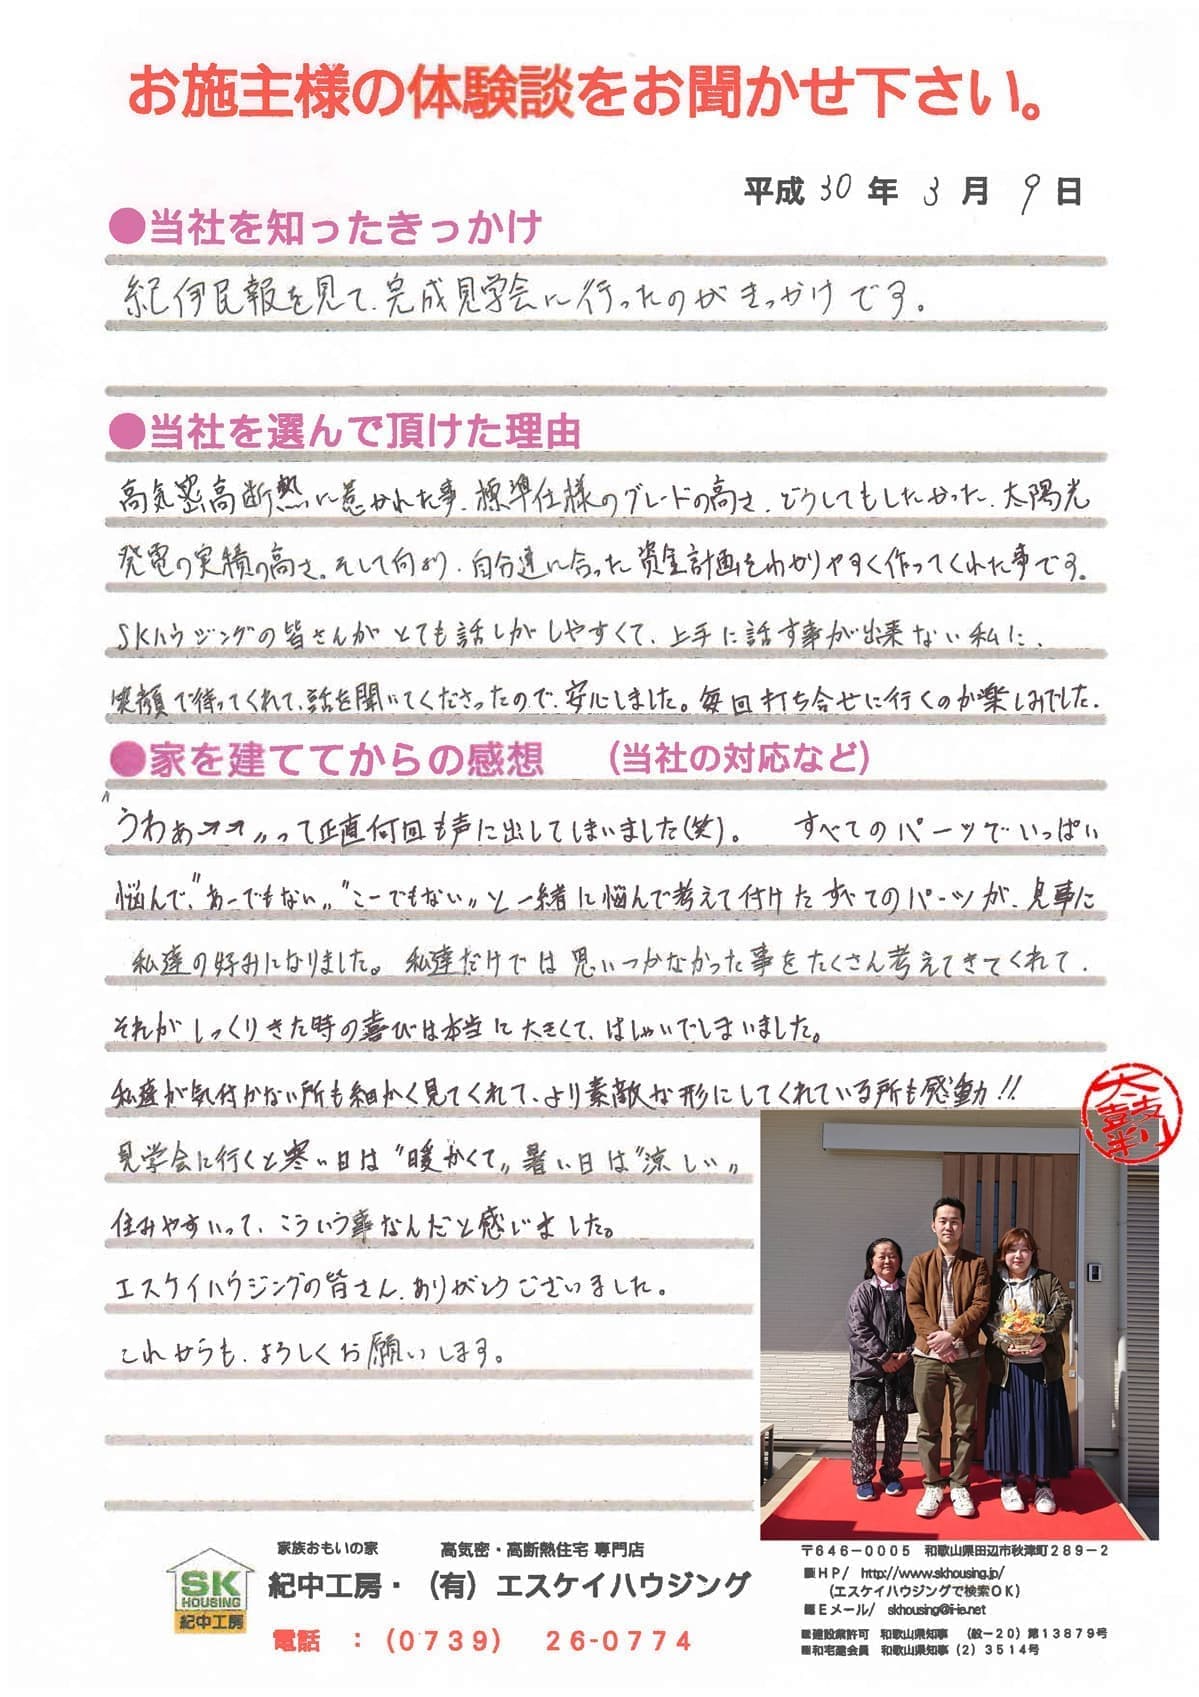 お施主様の体験談をお聞かせ下さい。
平成 30 年 3 月 9 日
●当社を知ったきっかけ
紀伊民報を見て、完成見学会に行ったのがきっかけです。
●当社を選んで頂けた理由
高気密高断熱に惹かれた事、標準仕様のグレードの高さ、どうしてもしたかった、太陽光
発電の実績の高さ。そして何より、自分達に合った資金計画をわかりやすく作ってくれた事です。
SKハウジングの皆さんがとても話しがしやすくて、上手に話す事が出来ない私に、
笑顔で待ってくれて、話を聞いてくださったので、安心しました。毎回打ち合せに行くのが楽しみでした。
●家を建ててからの感想 （当社の対応など）
“うわぁ→→〃って正直何回も声に出してしまいました(笑)。 すべてのパーツでいっぱい
悩んで、“あーでもない〃“こーでもない〃と一緒に悩んで考えて付けたすべてのパーツが、見事に
私達の好みになりました。私達だけでは思いつかなかった事をたくさん考えてきてくれて、
それがしっくりきた時の喜びは本当に大きくて、はしゃいでしまいました。
私達が気付かない所も細かく見てくれて、より素敵な形にしてくれている所も感動!!
見学会に行くと寒い日は“暖かくて〃暑い日は“涼しい〃
住みやすいって、こういう事なんだと感じました。
エスケイハウジングの皆さん、ありがとうございました。
これからも、よろしくお願いします。
太鼓判
SK
HOUSING
紀中工房
家族おもいの家 高気密・高断熱住宅 専門店
紀中工房・（有）エスケイハウジング
電話 ：（0739） 26-0774
〒646－0005 和歌山県田辺市秋津町289－2
■HP/ http://www.skhousing.jp/
（エスケイハウジングで検索OK）
■Eメール/ skhousing@i-ie.net
■建設業許可 和歌山県知事 （般－20）第13879号
■和宅建会員 和歌山県知事（2）3514号